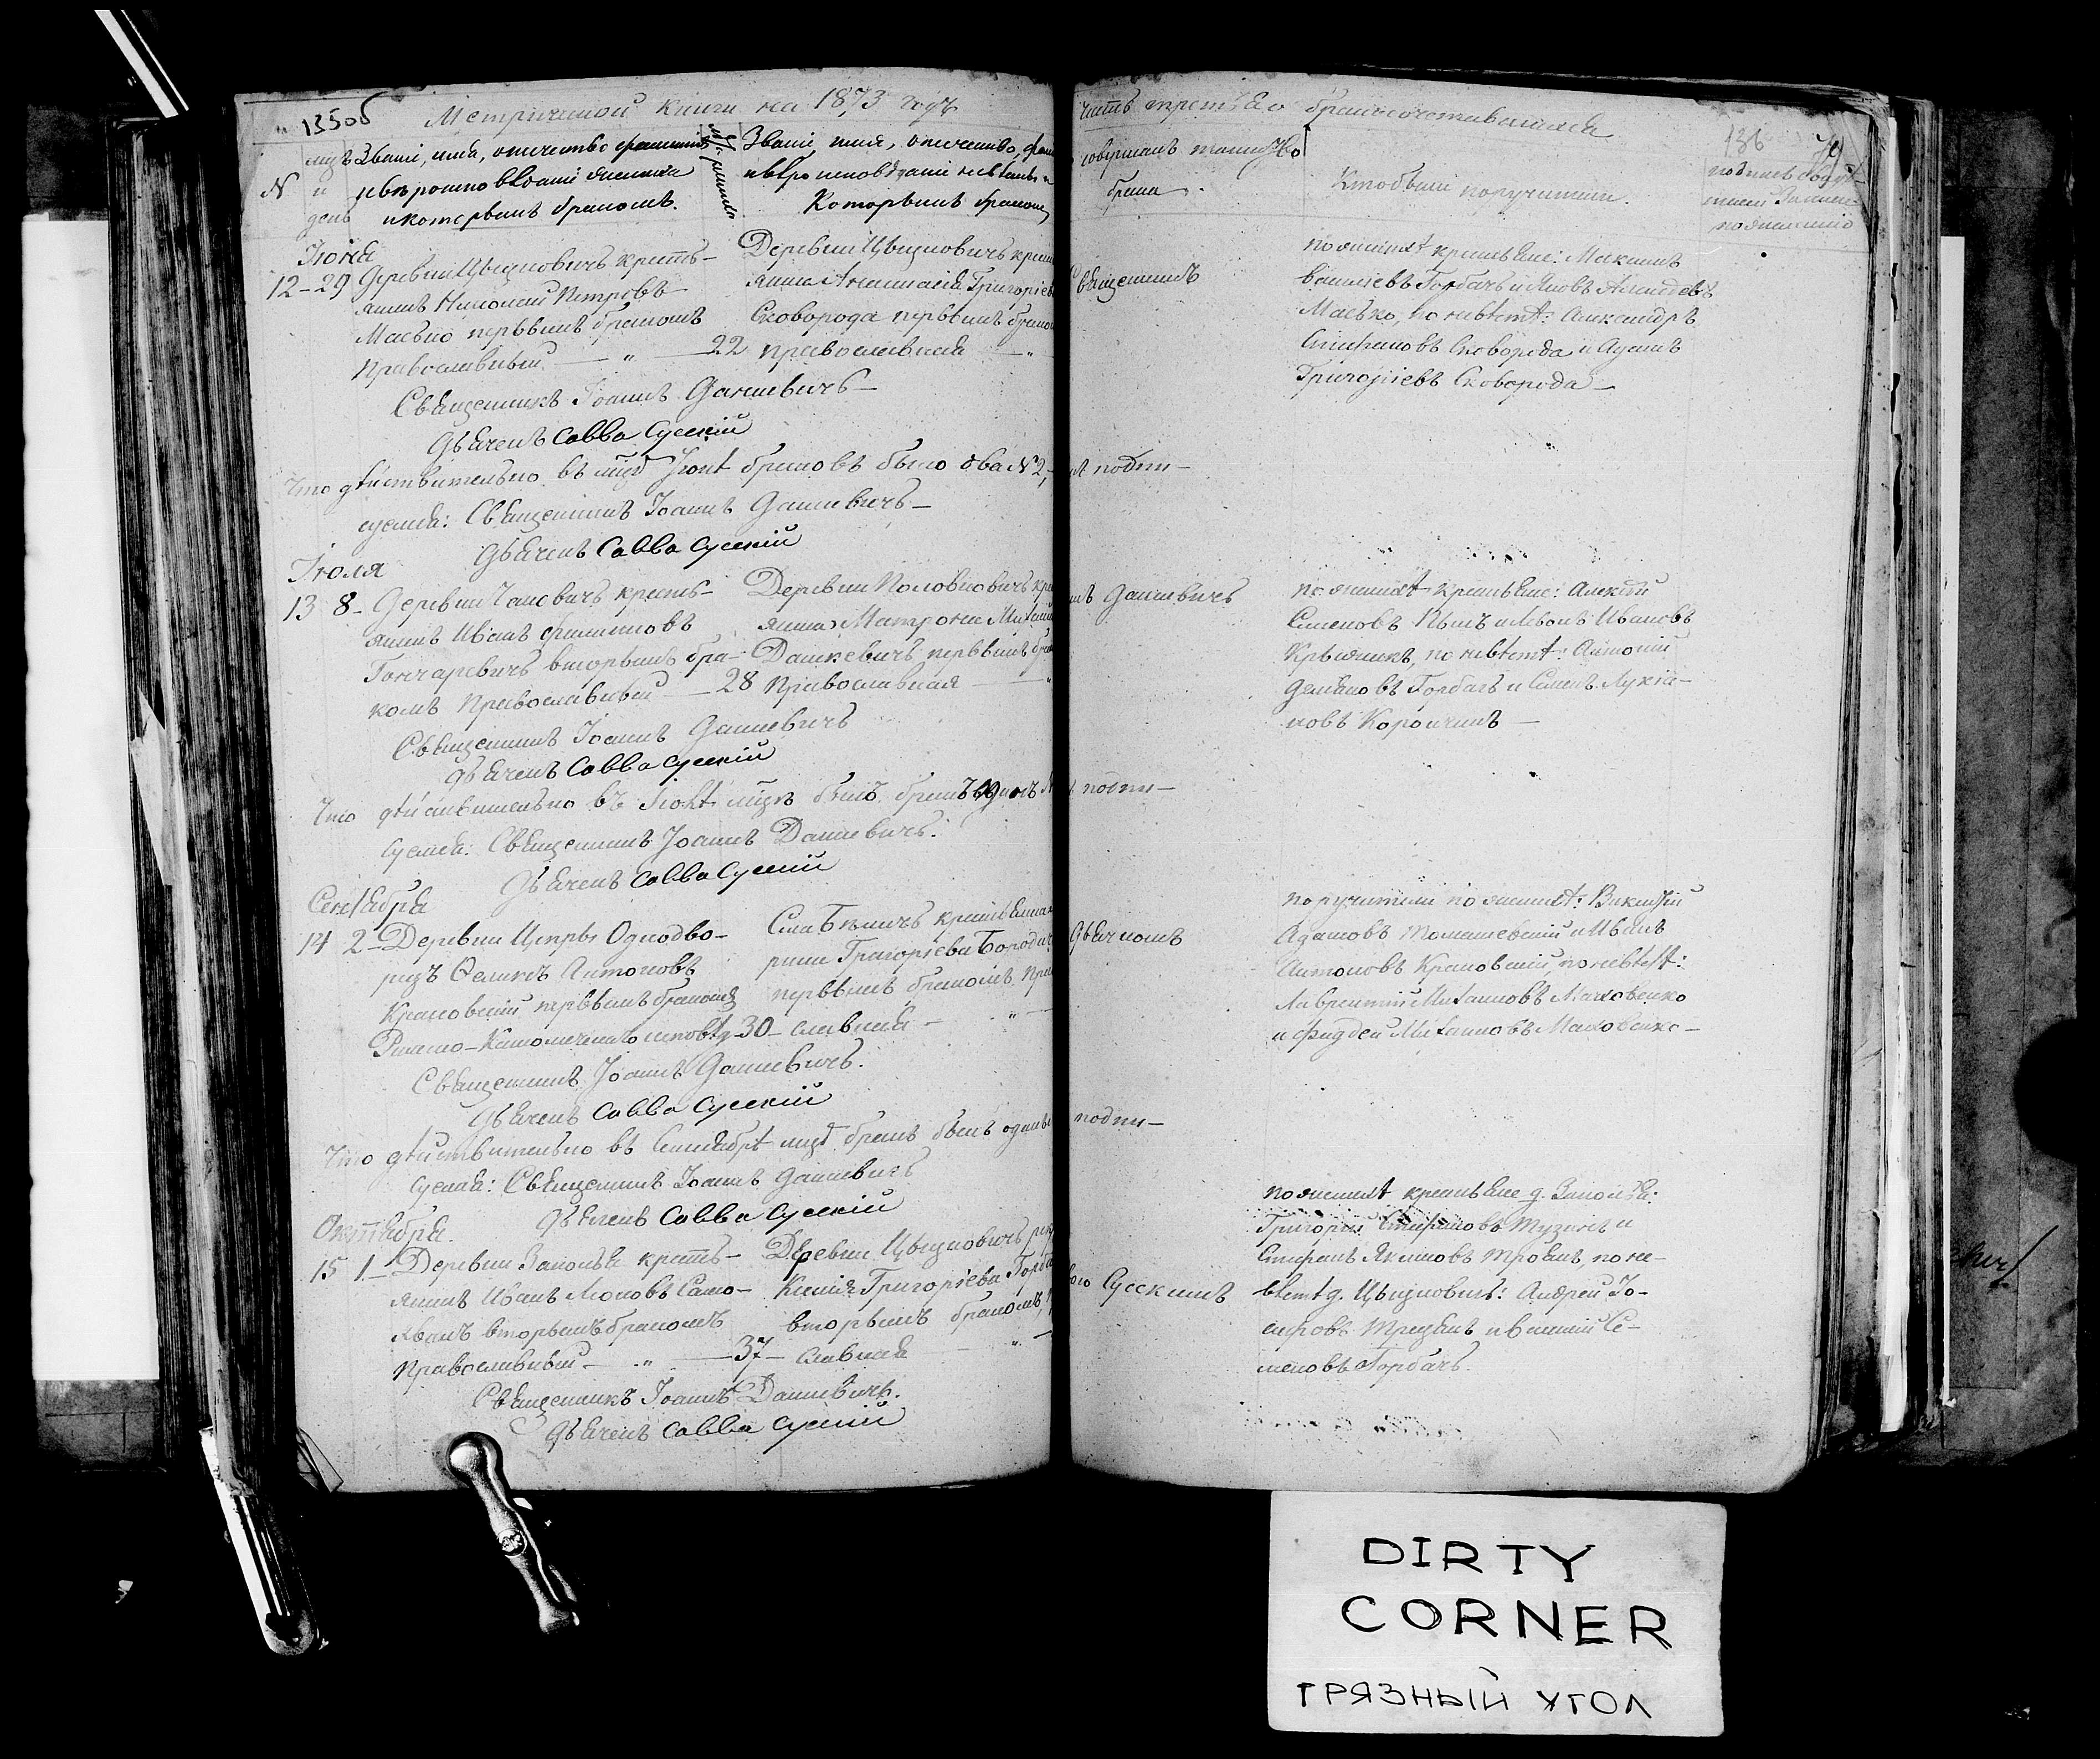 135об
Метрической книги на 1873 годъ
часть третья о бракосочетавшихся
136
N
мцъ и день
Званіе, имя, отчество, фамилія
и вѣроисповѣданіе жениха
и которымъ бракомъ.
Званіе, имя, отчество, фами
и вѣроисповѣданіе невѣсты и
Которымъ бракомъ
совершалъ таинство
брака.
Кто были поручители.
Іюня
12 – 29 Деревни Цвызновичъ кресть-
янинъ Николай Петровъ
Масько первымъ бракомъ
Православный — „ — 22
Деревни Цвызновичъ крест
янка Анастасія Григоріева
Сковорода первымъ брако
православная — „
Священникъ
по женихѣ крестьяне: Максимъ
Васильевъ Горбачъ и Яковъ
Масько, по невѣстѣ: Александръ
Стефановъ Сковорода и Адамъ
Григоріевъ Сковорода —
Священникъ Іоаннъ Данкевичъ —
Дьячекъ Савва Сусскій
Что дѣйствительно въ мцѣ Іюнѣ браковъ было два N 2, подпи-
суемся: Священникъ Іоаннъ Данкевичъ —
Дьячекъ Савва Сусскій
Іюля
13 8 – Деревни кресть-
янинъ Иванъ Филиповъ
Гончаревичъ вторымъ бра-
комъ Православный — 28
Деревни Половковичъ кре
янка Матрона Михайл
Дашкевичъ первымъ бра
Православная — „
Данкевичъ
по женихѣ крестьяне: Алексѣй
Семеновъ и Леонъ Ивановъ
по невѣстѣ: Антоній
Демяновъ Горбачъ и Семенъ Лукіа-
новъ —
Священникъ Іоаннъ Данкевичъ
Дьячекъ Савва Сусскій
Что дѣйствительно въ Іюлѣ мцѣ былъ бракъ одинъ N подпи-
суемся: Священникъ Іоаннъ Данкевичъ.
Дьячекъ Савва Сусскій
Сентября
14 2 – Деревни Цепры Однодво-
рецъ Феликсъ Антоновъ
Краковскій первымъ бракомъ
Римско-Католическаго исповѣд. 30 –
крестьянка
Григоріева Бородич
первымъ бракомъ Пра
славная — „ —
Дьячкомъ
поручители по женихѣ: Викентій
Адамовъ Томашевскій и Иванъ
Антоновъ Краковскій, по невѣстѣ:
Лаврентій Михаиловъ Маховенко
и Фаддей Михаиловъ Маховенко –
Священникъ Іоаннъ Данкевичъ.
Дьячекъ Савва Сусскій
Что дѣйствительно въ Сентябрѣ мцѣ бракъ былъ одинъ подпи-
суемся: Священникъ Іоаннъ Данкевичъ
Дьячекъ Савва Сусскій
Октября.
15 1 – Деревни Заполья кресть-
янинъ Иванъ Леоновъ Само-
хвалъ вторымъ бракомъ
Православный — „ — 37 –
Деревни Цвызновичъ
Ксенія Григоріева Горба
вторымъ бракомъ,
славная „ —
Сусскимъ
по женихѣ крестьяне д. Заполья:
Григорій Стефановъ и
Стефанъ Якимовъ Троянъ, по не-
вѣстѣ д. Цвызновичъ: Андрей Іо-
сифовъ и Василій Се-
меновъ Горбачъ.
Священникъ Іоаннъ Данкевичъ.
Дьячекъ Савва Сусскій
DIRTY
CORNER
ГРЯЗНЫЙ УГОЛ